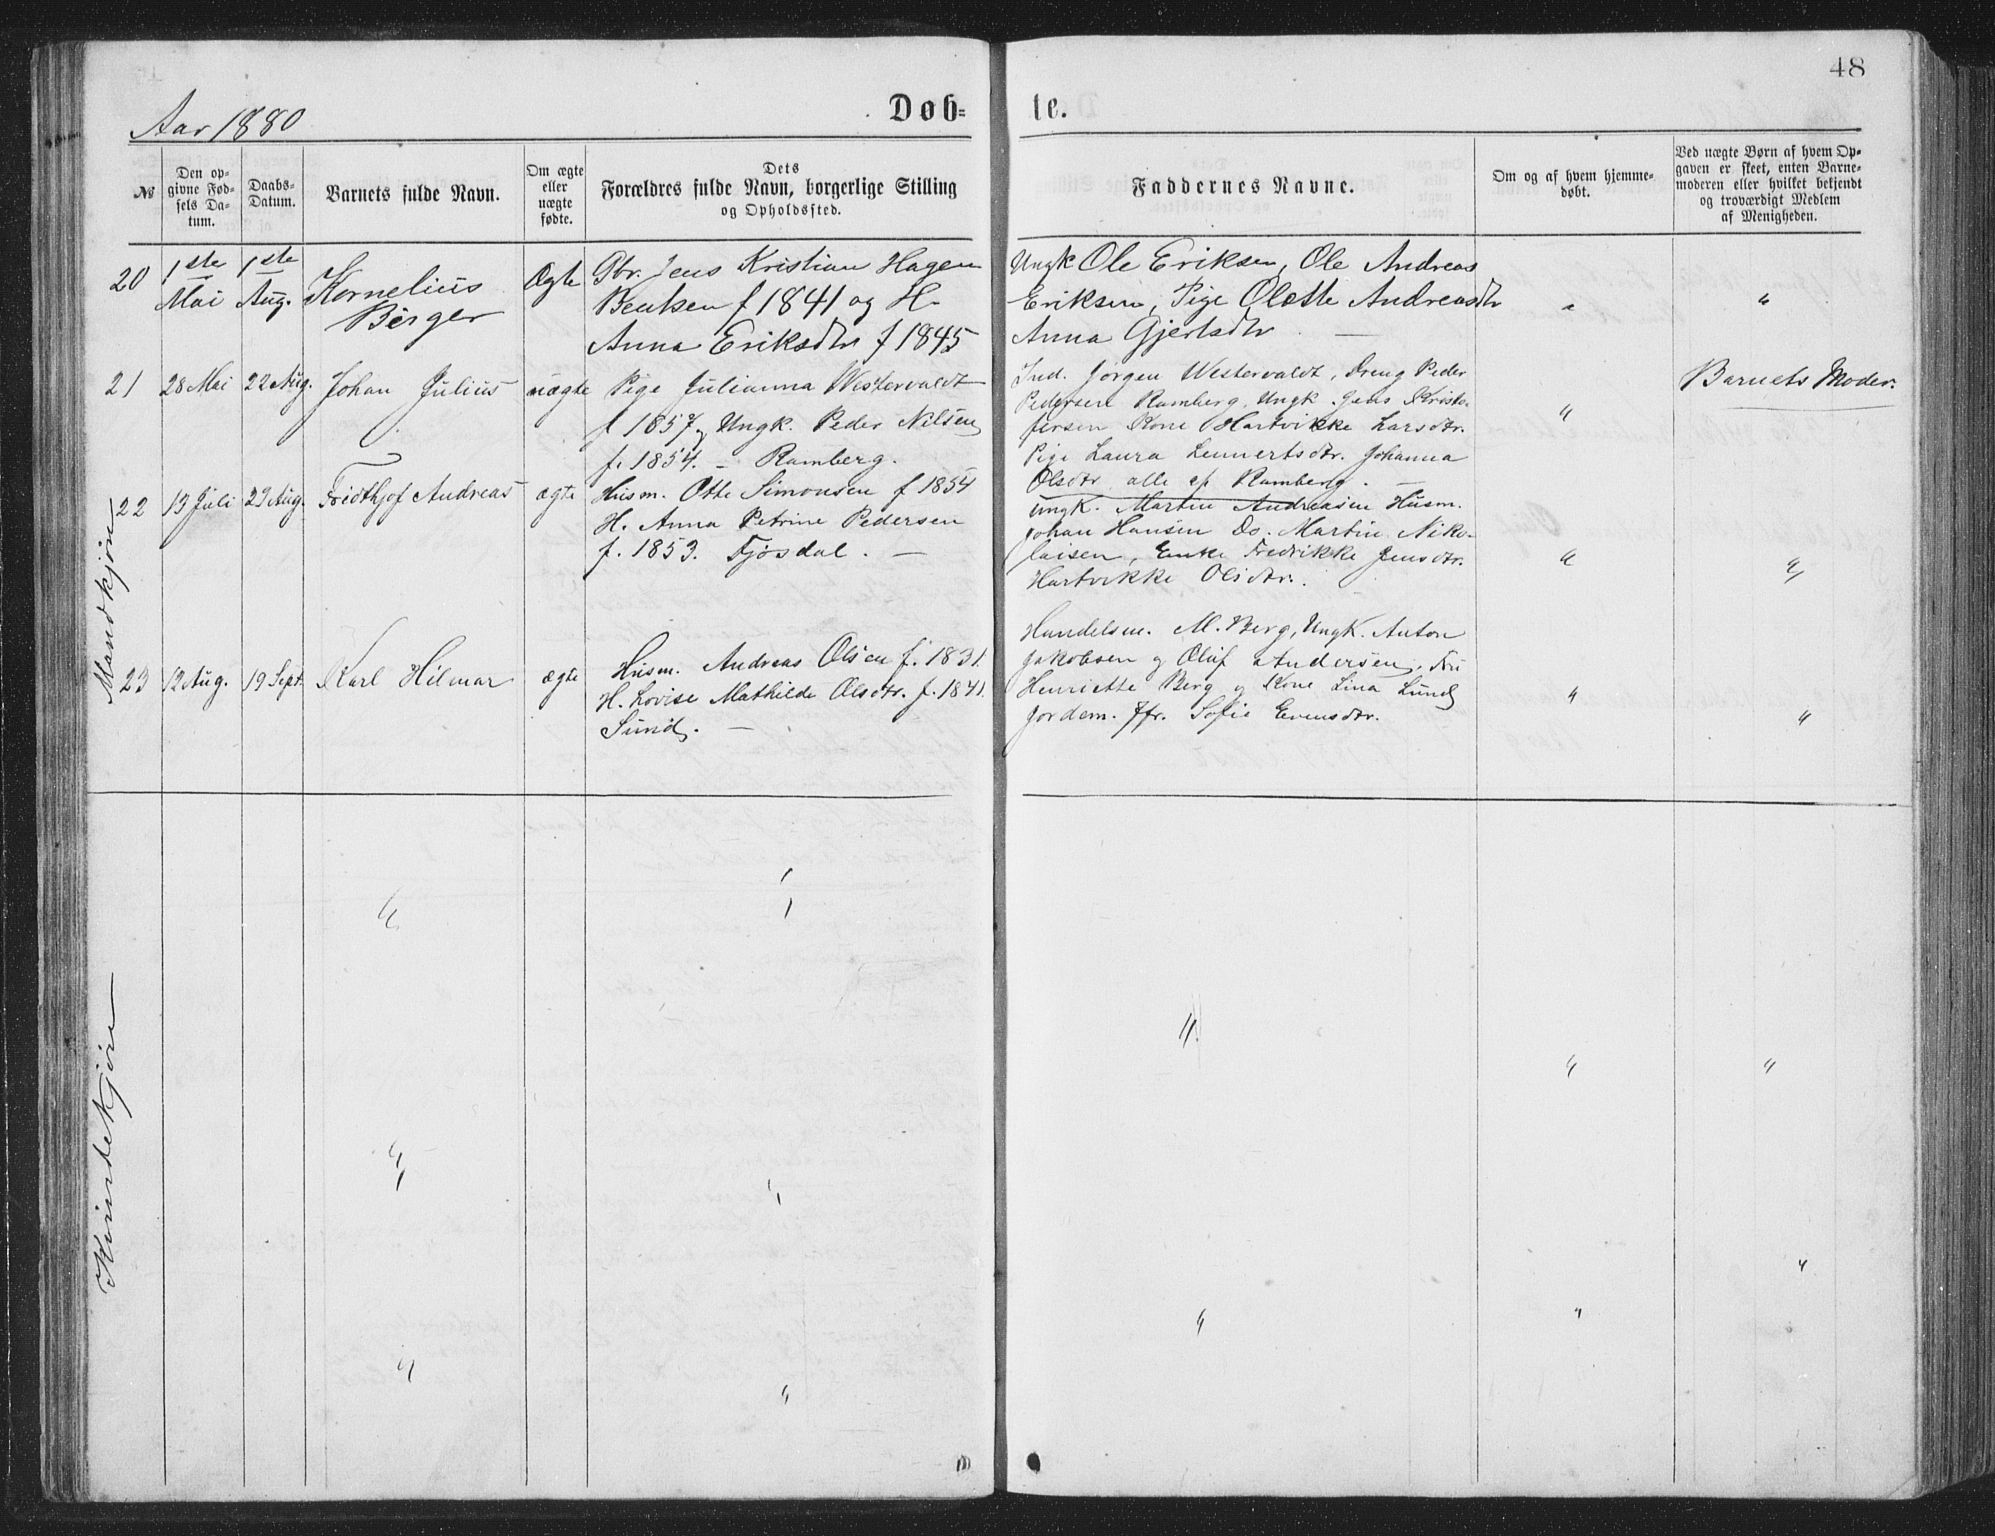 48
Aar 1880
Døb=
te.
№
Den op=
givne Fød=
sels Da=
tum.
Daabs=
Datum.
Barnets fulde Navn.
Om ægte
eller
uægte
fødte.
Dets
Forældres fulde Navn, borgerlige Stilling
og Opholdssted.
Faddernes Navne.
Om og af hvem hjemme=
døbt.
Ved uægte Børn af hvem Op=
gaven er skeet, enten Barne=
moderen eller hvilket bekjendt
og troværdigt Medlem
af Menigheden.
Mandkjøn
20
1ste
Mai
1ste
Aug.
Kornelius
Birger
Ægte
Gbr. Jens Kristian Hagen
Bentsen f 1841 og H.
Anna Eriksdtr f 1845
Ungk Ole Eriksen, Ole Andreas
Eriksen, Pige Olette Andreasdtr
Anna Gjertsdtr —
"
"
21
28 Mai
22 Aug.
Johan Julius
uægte
Pige Julianna Westervaldt
f 1857 og Ungk. Peder Nilsen
f. 1854. — Ramberg.
Ind. Jørgen Westervaldt, Dreng Peder
Pedersen Ramberg, Ungk. Jens Kristo-
fersen Kone Hartvikke Larsdtr.
Pige Laura Lennertsdtr. Johanna
Olsdtr alle af Ramberg. —
"
Barnets Moder.
22
13 Juli
29 Aug.
Fridthjof Andreas
ægte
Husm. Otte Simonsen f 1854
H. Anna Petrine Pedersen
f. 1853. Fjøsdal. —
Ungk. Martin Andreasen Husm.
Johan Hansen Do. Martin Niko-
laisen, Enke Fredrikke Jensdtr.
Hartvikke Olsdtr.
"
"
23
12 Aug.
19 Sept.
Karl Hilmar
ægte
Husm. Andreas Olsen f. 1831.
H. Lovise Mathilde Olsdtr. f. 1841.
Sund. —
Handelsm. M. Berg, Ungk. Anton
Jakobsen og Oluf Andersen, Fru
Henriette Berg og Kone Lina Lund
Jordem. Jfr. Sofie Evensdtr.
"
"
Kvindekjøn
"
"
"
"
"
"
"
"
"
"
"
"